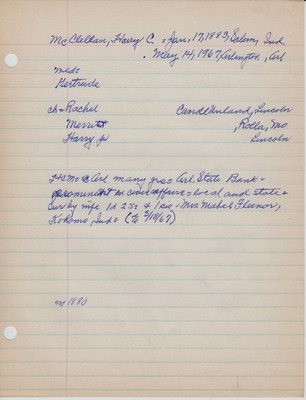 McClellan, Harry C. = Jan. 17, 1883, Salem, Ind.
. May 14, 1967, Arlington, Arl
med=
Gertrude
ch = Rachel Lincoln
Merritt , Rotler, Mo
Harry Jr Lincoln
HCMc Arl many yrs = Arl. State Bank =
prominent in civic affairs = local and state =
Sur by wife 1d 2s = & 1 sis = Mrs Mabel Fleenor,
Kokomo, Ind = (E 5/18/67)
M 1880